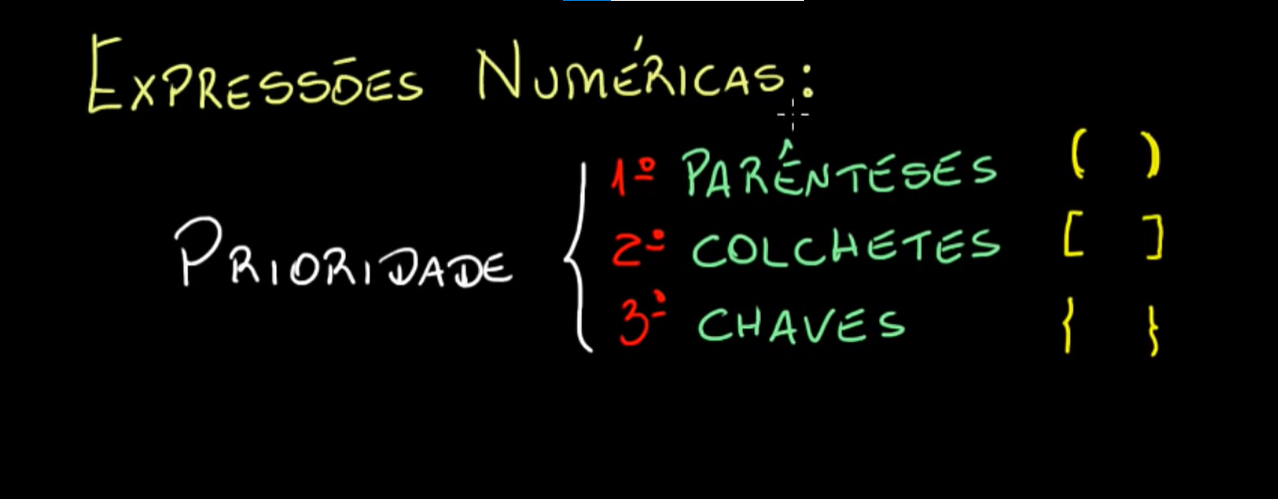 EXPRESSÕES NUMÉRICAS:
PRIORIDADE {
1º PARÊNTESES ( )
2º COLCHETES [ ]
3º CHAVES { }